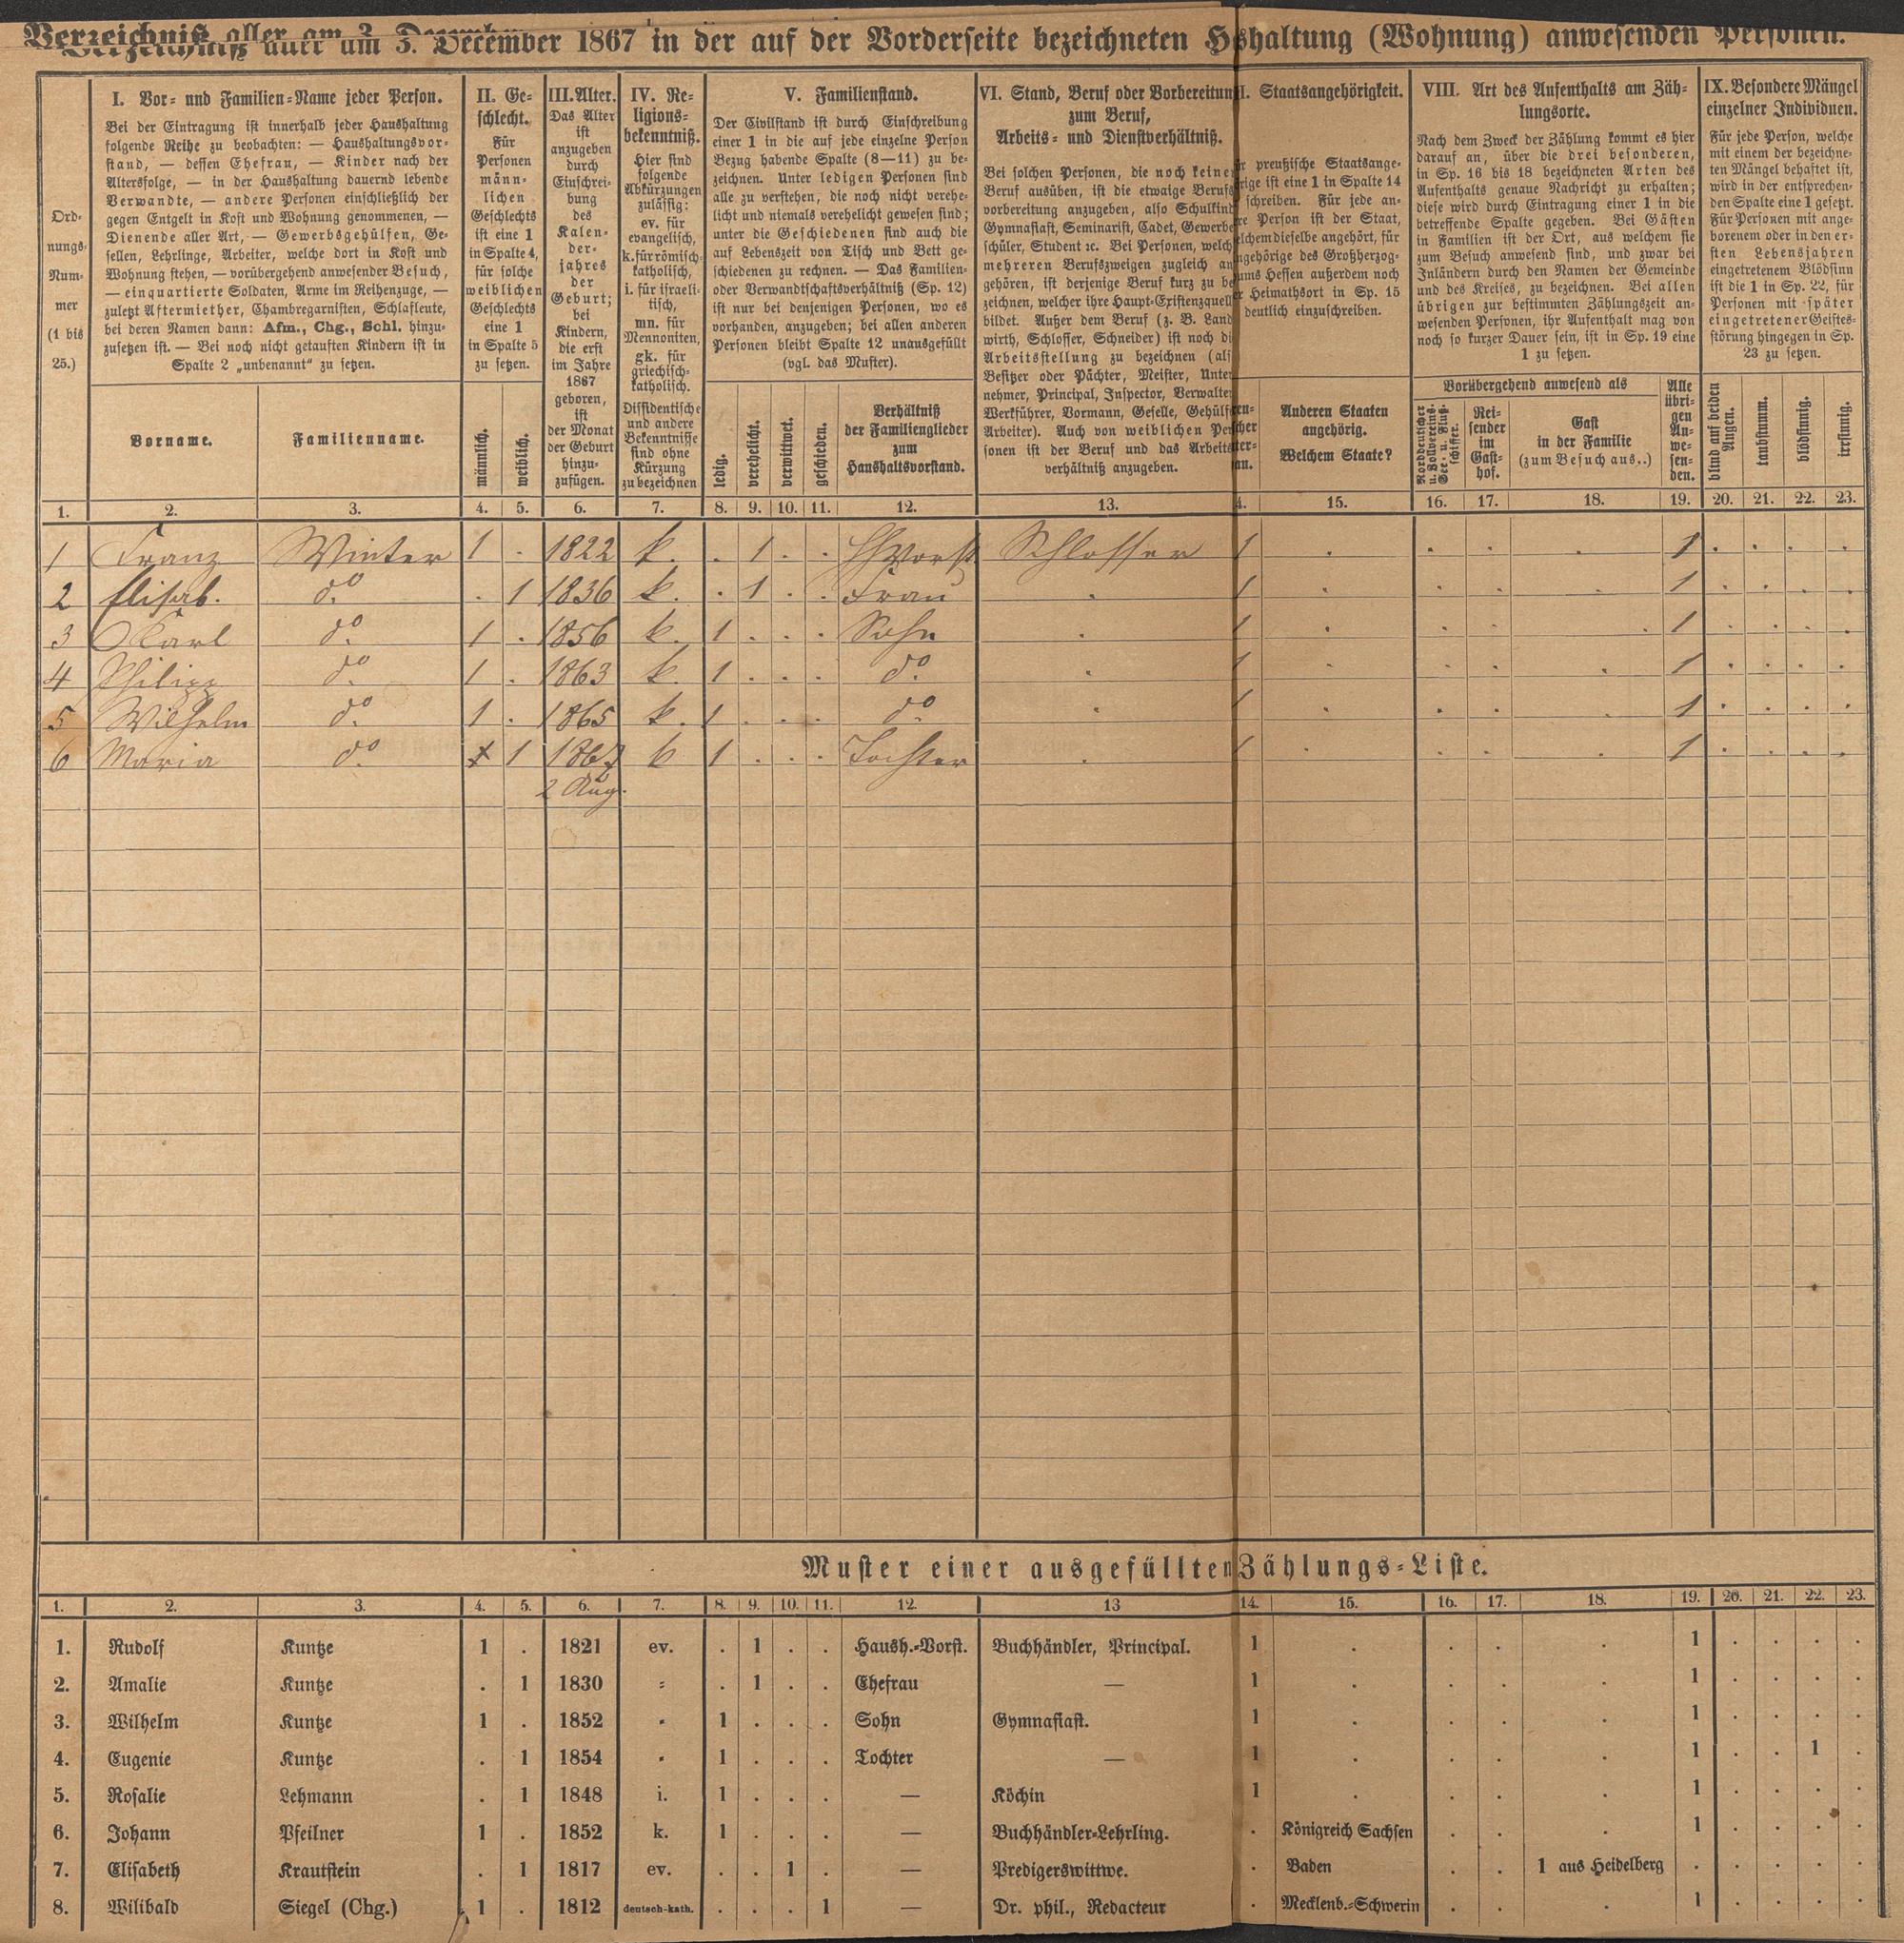 Verzeichniß aller am 3. December 1867 in der auf der Vorderseite bezeichneten Hshaltung (Wohnung) anwesenden Personen.
Ord-
nungs-
Num-
mer
(1 bis
25.)
I. Vor- und Familien-Name jeder Person.
Bei der Eintragung ist innerhalb jeder Haushaltung
folgende Reihe zu beobachten: — Haushaltungsvor-
stand, — dessen Ehefrau, — Kinder nach der
Altersfolge, — in der Haushaltung dauernd lebende
Verwandte, — andere Personen einschließlich der
gegen Entgelt in Kost und Wohnung genommenen, —
Dienende aller Art, — Gewerbsgehülfen, Ge-
sellen, Lehrlinge, Arbeiter, welche dort in Kost und
Wohnung stehen, — vorübergehend anwesender Besuch,
— einquartierte Soldaten, Arme im Reihenzuge, —
zuletzt Aftermiether, Chambregarnisten, Schlafleute,
bei deren Namen dann: Afm., Chg., Schl. hinzu-
zusetzen ist. — Bei noch nicht getauften Kindern ist in
Spalte 2 „unbenannt“ zu setzen.
Vorname.
Familienname.
II. Ge-
schlecht.
Für
Personen
männ-
lichen
Geschlechts
ist eine 1
in Spalte 4,
für solche
weiblichen
Geschlechts
eine 1
in Spalte 5
zu setzen.
männlich.
weiblich.
III. Alter.
Das Alter
ist
anzugeben
durch
Einschrei-
bung
des
Kalen-
der-
jahres
der
Geburt;
bei
Kindern,
die erst
im Jahre
1867
geboren,
ist
der Monat
der Geburt
hinzu-
zufügen.
IV. Re-
ligions-
bekenntniß.
Hier sind
folgende
Abkürzungen
zulässig:
ev. für
evangelisch,
k. für römisch-
katholisch,
i. für israeli-
tisch,
mn. für
Mennoniten,
gk. für
griechisch-
katholisch.
Dissidentische
und andere
Bekenntnisse
sind ohne
Kürzung
zu bezeichnen
V. Familienstand.
Der Civilstand ist durch Einschreibung
einer 1 in die auf jede einzelne Person
Bezug habende Spalte (8—11) zu be-
zeichnen. Unter ledigen Personen sind
alle zu verstehen, die noch nicht verehe-
licht und niemals verehelicht gewesen sind;
unter die Geschiedenen sind auch die
auf Lebenszeit von Tisch und Bett ge-
schiedenen zu rechnen. — Das Familien-
oder Verwandtschaftsverhältniß (Sp. 12)
ist nur bei denjenigen Personen, wo es
vorhanden, anzugeben; bei allen anderen
Personen bleibt Spalte 12 unausgefüllt
(vgl. das Muster).
ledig.
verehelicht.
verwittwet.
geschieden.
Verhältniß
der Familienglieder
zum
Haushaltsvorstand.
VI. Stand, Beruf oder Vorbereitun
zum Beruf,
Arbeits- und Dienstverhältniß.
Bei solchen Personen, die noch keine
Beruf ausüben, ist die etwaige Berufs
vorbereitung anzugeben, also Schulkind
Gymnasiast, Seminarist, Cadet, Gewerbe
schüler, Student ꝛc. Bei Personen, welch
mehreren Berufszweigen zugleich an
gehören, ist derjenige Beruf kurz zu be
zeichnen, welcher ihre Haupt-Existenzquell
bildet. Außer dem Beruf (z. B. Land
wirth, Schlosser, Schneider) ist noch di
Arbeitsstellung zu bezeichnen (als
Besitzer oder Pächter, Meister, Unter
nehmer, Principal, Inspector, Verwalter
Werkführer, Vormann, Geselle, Gehülf
Arbeiter). Auch von weiblichen Per
sonen ist der Beruf und das Arbeits
verhältniß anzugeben.
I. Staatsangehörigkeit.
r preußische Staatsange-
rige ist eine 1 in Spalte 14
schreiben. Für jede an-
re Person ist der Staat,
lchem dieselbe angehört, für
ngehörige des Großherzog-
ums Hessen außerdem noch
r Heimathsort in Sp. 15
deutlich einzuschreiben.
Anderen Staaten
angehörig.
Welchem Staate?
VIII. Art des Aufenthalts am Zäh-
lungsorte.
Nach dem Zweck der Zählung kommt es hier
darauf an, über die drei besonderen,
in Sp. 16 bis 18 bezeichneten Arten des
Aufenthalts genaue Nachricht zu erhalten;
diese wird durch Eintragung einer 1 in die
betreffende Spalte gegeben. Bei Gästen
in Familien ist der Ort, aus welchem sie
zum Besuch anwesend sind, und zwar bei
Inländern durch den Namen der Gemeinde
und des Kreises, zu bezeichnen. Bei allen
übrigen zur bestimmten Zählungszeit an-
wesenden Personen, ihr Aufenthalt mag von
noch so kurzer Dauer sein, ist in Sp. 19 eine
1 zu setzen.
Vorübergehend anwesend als
Norddeutscher
u. Zollvereins-
See- u. Fluß-
schiffer.
Rei-
sender
im
Gast-
hof.
Gast
in der Familie
(zum Besuch aus..)
Alle
übri-
gen
An-
we-
sen-
den.
IX. Besondere Mängel
einzelner Individuen.
Für jede Person, welche
mit einem der bezeichne-
ten Mängel behaftet ist,
wird in der entsprechen-
den Spalte eine 1 gesetzt.
Für Personen mit ange-
borenem oder in den er-
sten Lebensjahren
eingetretenem Blödsinn
ist die 1 in Sp. 22, für
Personen mit später
eingetretener Geistes-
störung hingegen in Sp.
23 zu setzen.
blind auf beiden
Augen.
taubstumm.
blödsinnig.
irrsinnig.
1. 2. 3. 4. 5. 6. 7. 8. 9. 10. 11. 12. 13. 4. 15. 16. 17. 18. 19. 20. 21. 22. 23.
1 Franz Winter 1 . 1822 k. . 1 . . HhVorst Schlosser 1 . . . . 1 . . . .
2 Elisab. do. . 1 1836 k. . 1 . . Frau . 1 . . . . 1 . . . .
3 Karl do. 1 . 1856 k. 1 . . . Sohn . 1 . . . . 1 . . . .
4 Philipp do. 1 . 1863 k. 1 . . . do. . 1 . . . . 1 . . . .
5 Wilhelm do. 1 . 1865 k. 1 . . . do. . 1 . . . . 1 . . . .
6 Maria do. 1 1867 k 1 . . . Tochter . 1 . . . . 1 . . . .
2 Aug.
Muster einer ausgefüllten Zählungs-Liste.
1. 2. 3. 4. 5. 6. 7. 8. 9. 10. 11. 12. 13 14. 15. 16. 17. 18. 19. 20. 21. 22. 23.
1. Rudolf Kuntze 1 . 1821 ev. . 1 . . Haush.-Vorst. Buchhändler, Principal. 1 . . . . 1 . . . .
2. Amalie Kuntze . 1 1830 = . 1 . . Ehefrau — 1 . . . . 1 . . . .
3. Wilhelm Kuntze 1 . 1852 = 1 . . . Sohn Gymnasiast. 1 . . . . 1 . . . .
4. Eugenie Kuntze . 1 1854 = 1 . . . Tochter — 1 . . . . 1 . . 1 .
5. Rosalie Lehmann . 1 1848 i. 1 . . . — Köchin 1 . . . . 1 . . . .
6. Johann Pfeilner 1 . 1852 k. 1 . . . — Buchhändler-Lehrling. . Königreich Sachsen . . . 1 . . . .
7. Elisabeth Krautstein . 1 1817 ev. . . 1 . — Predigerswittwe. . Baden . . 1 aus Heidelberg . . . . .
8. Wilibald Siegel (Chg.) 1 . 1812 deutsch-kath. . . . 1 — Dr. phil., Redacteur . Mecklenb.-Schwerin . . . 1 . . . .